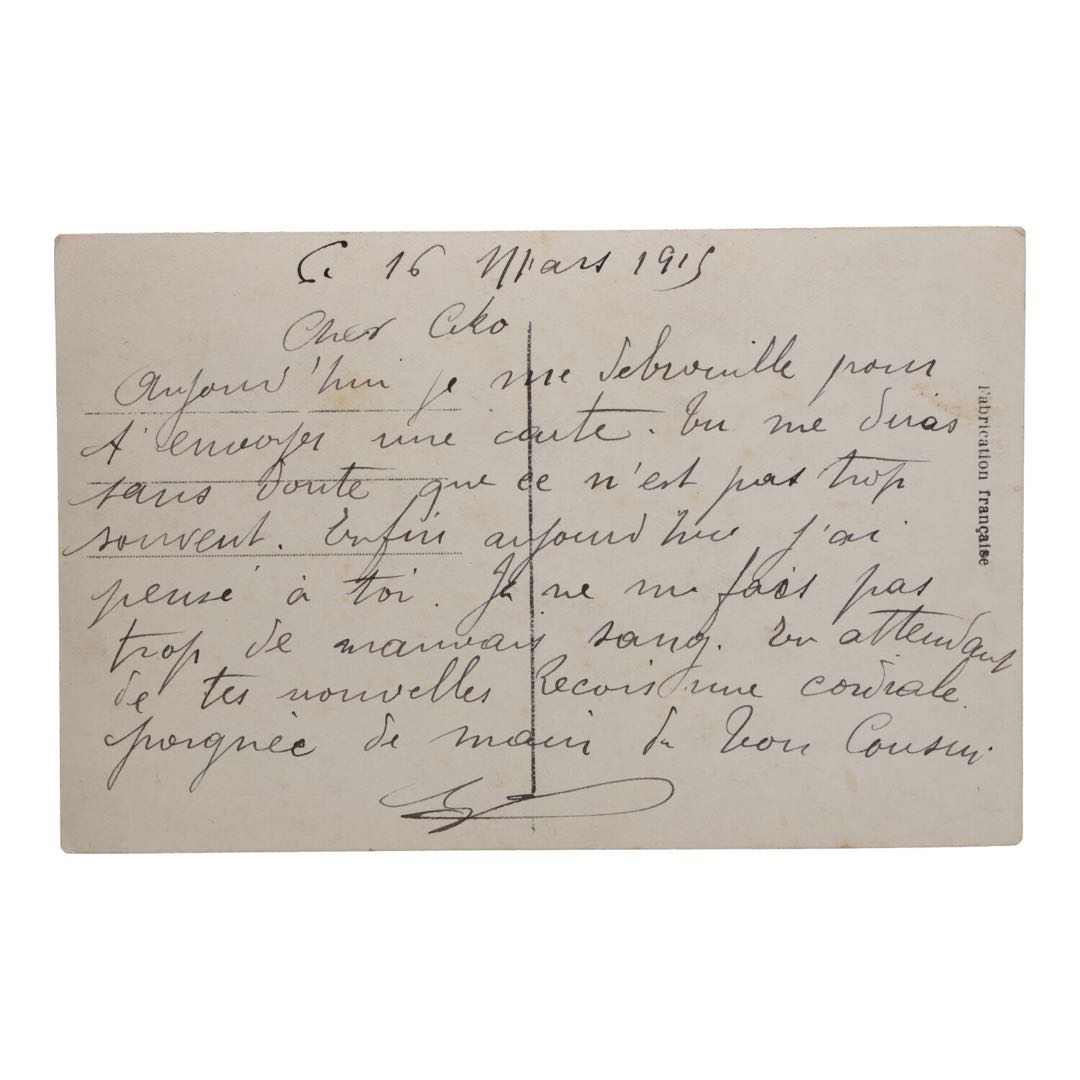 16 Mars 1915
Cher
Aujourd'hui je me debrouille pour
t'envoyer une carte. Tu me diras
sans doute que ce n'est pas trop
souvent. Enfin aujourd'hui j'ai
pensé à toi. Je ne me fais pas
trop de mauvais sang. En attendant
de tes nouvelles Recois une cordiale
poignée de main de ton Cousin
Fabrication française